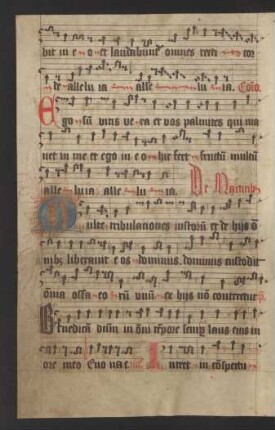 bit in e o et laudabunt omnes recti cor
de alle lu ia alle lu ia. Co̅io.
Ego su̅ vitis ve ra et vos palmites qui ma
net in me et ego in e o hic fert fructu̅ multu̅
alle luia alle lu ia. De Martirib
Multe tribulationes iustoru̅ et de hys o̅
nibz liberauit e os dominus. dominus custodit
o̅nia ossa eo ru̅ unu̅ ex hys no̅ conteretur p̅
Benedica̅ dn̅m in o̅i te̅pore semp̲ laus eius in
ore meo Euouae Intret in co̅spectu